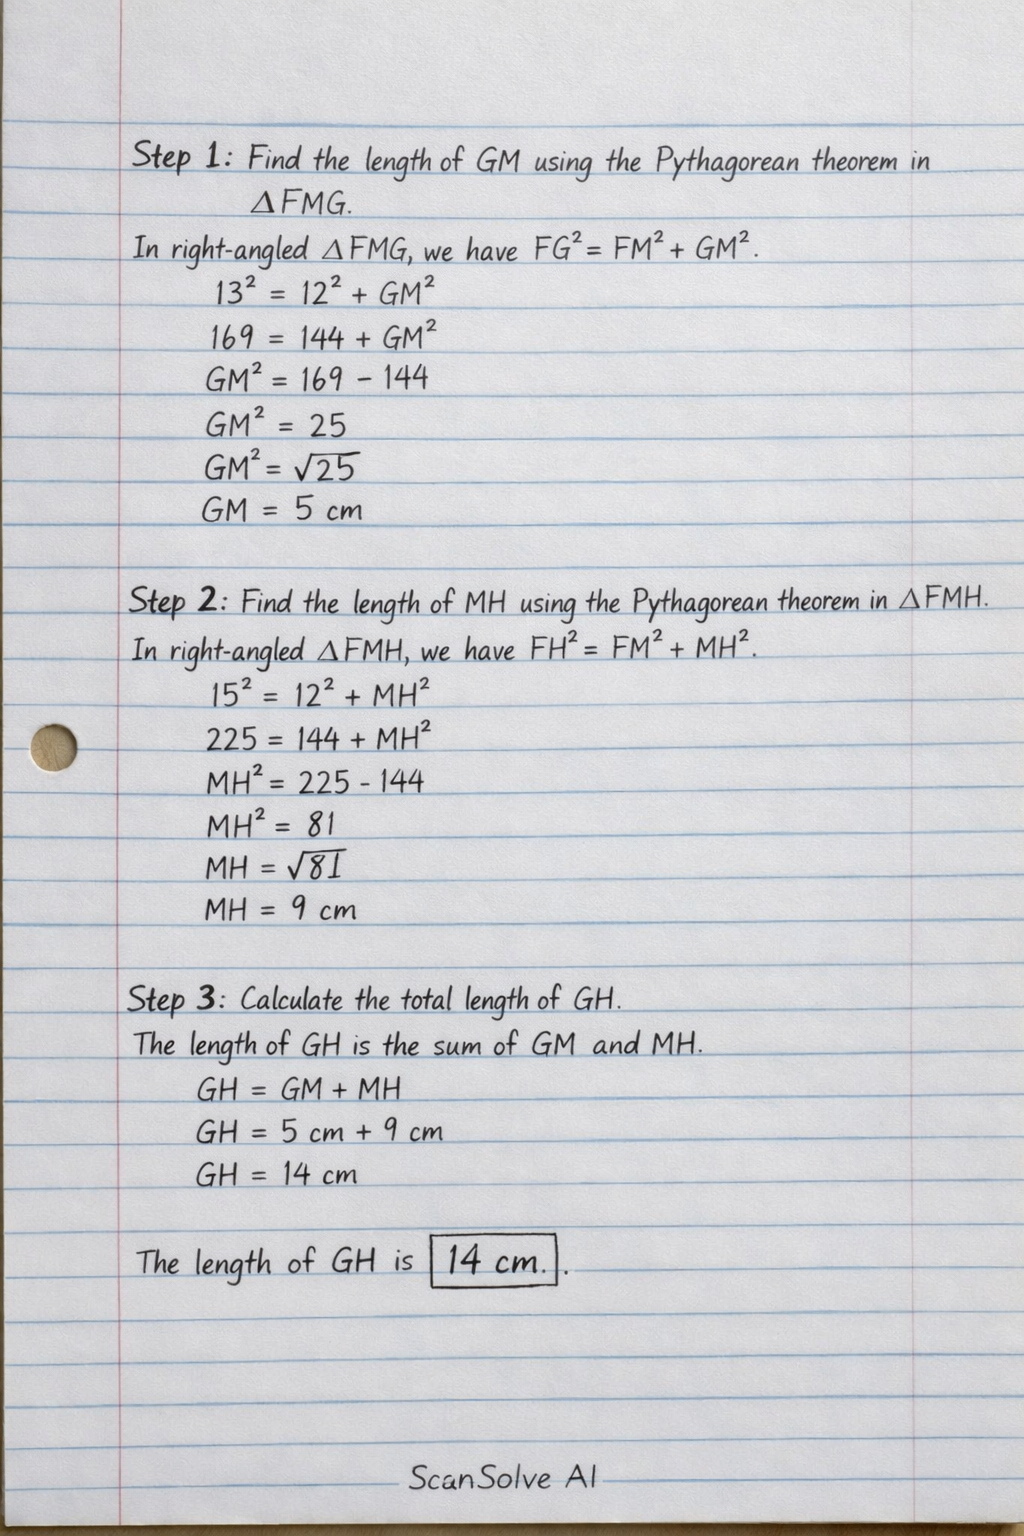 Step 1: Find the length of GM using the Pythagorean theorem in
ΔFMG.
In right-angled ΔFMG, we have FG² = FM² + GM².
13² = 12² + GM²
169 = 144 + GM²
GM² = 169 - 144
GM² = 25
GM² = √25
GM = 5 cm
Step 2: Find the length of MH using the Pythagorean theorem in ΔFMH.
In right-angled ΔFMH, we have FH² = FM² + MH².
15² = 12² + MH²
225 = 144 + MH²
MH² = 225 - 144
MH² = 81
MH = √81
MH = 9 cm
Step 3: Calculate the total length of GH.
The length of GH is the sum of GM and MH.
GH = GM + MH
GH = 5 cm + 9 cm
GH = 14 cm
The length of GH is 14 cm..
ScanSolve AI